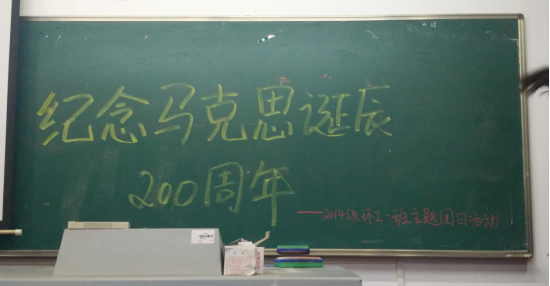 纪念马克思诞辰
200周年
——2014级环工一班主题团日活动